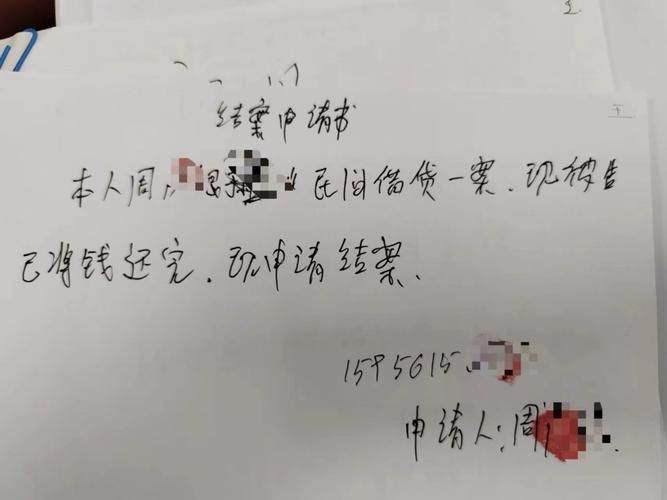 结案申请书
本人周 民间借贷一案、现被告
已将钱还完．现申请结案．
1595615
申请人：周